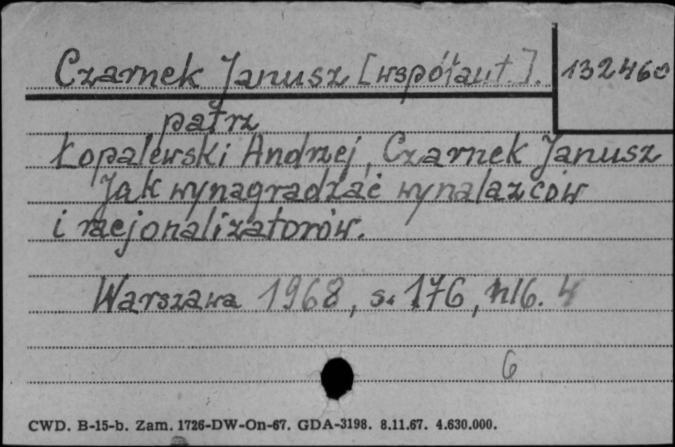 Czarnek Janusz [współaut.]. 132460
patrz
Łopalewski Andrzej, Czarnek Janusz
Jak wynagradzać wynalazców
i racjonalizatorów.
Warszawa 1968, s. 176, nlb. 4
6
CWD. B-15-b. Zam. 1726-DW-On-67. GDA-3198. 8.11.67. 4.630.000.